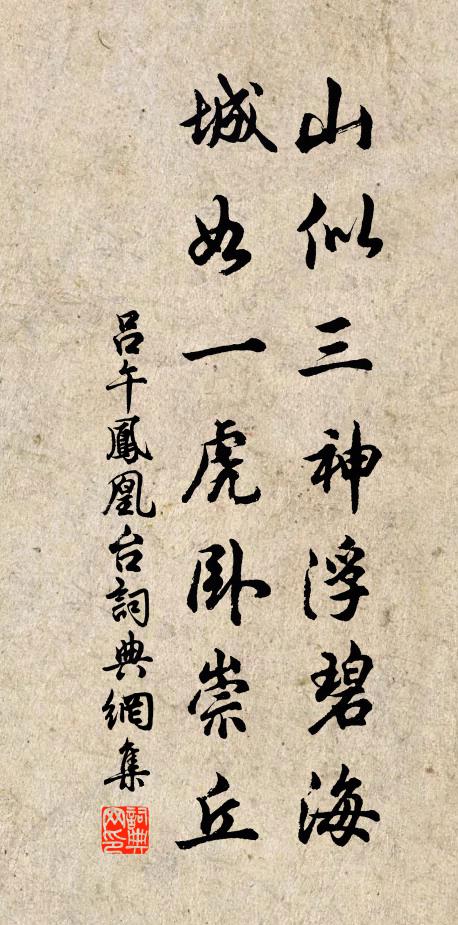 山似三神浮碧海
城如一虎卧崇丘
吕午鳳凰台詞典網集
詞典
网印